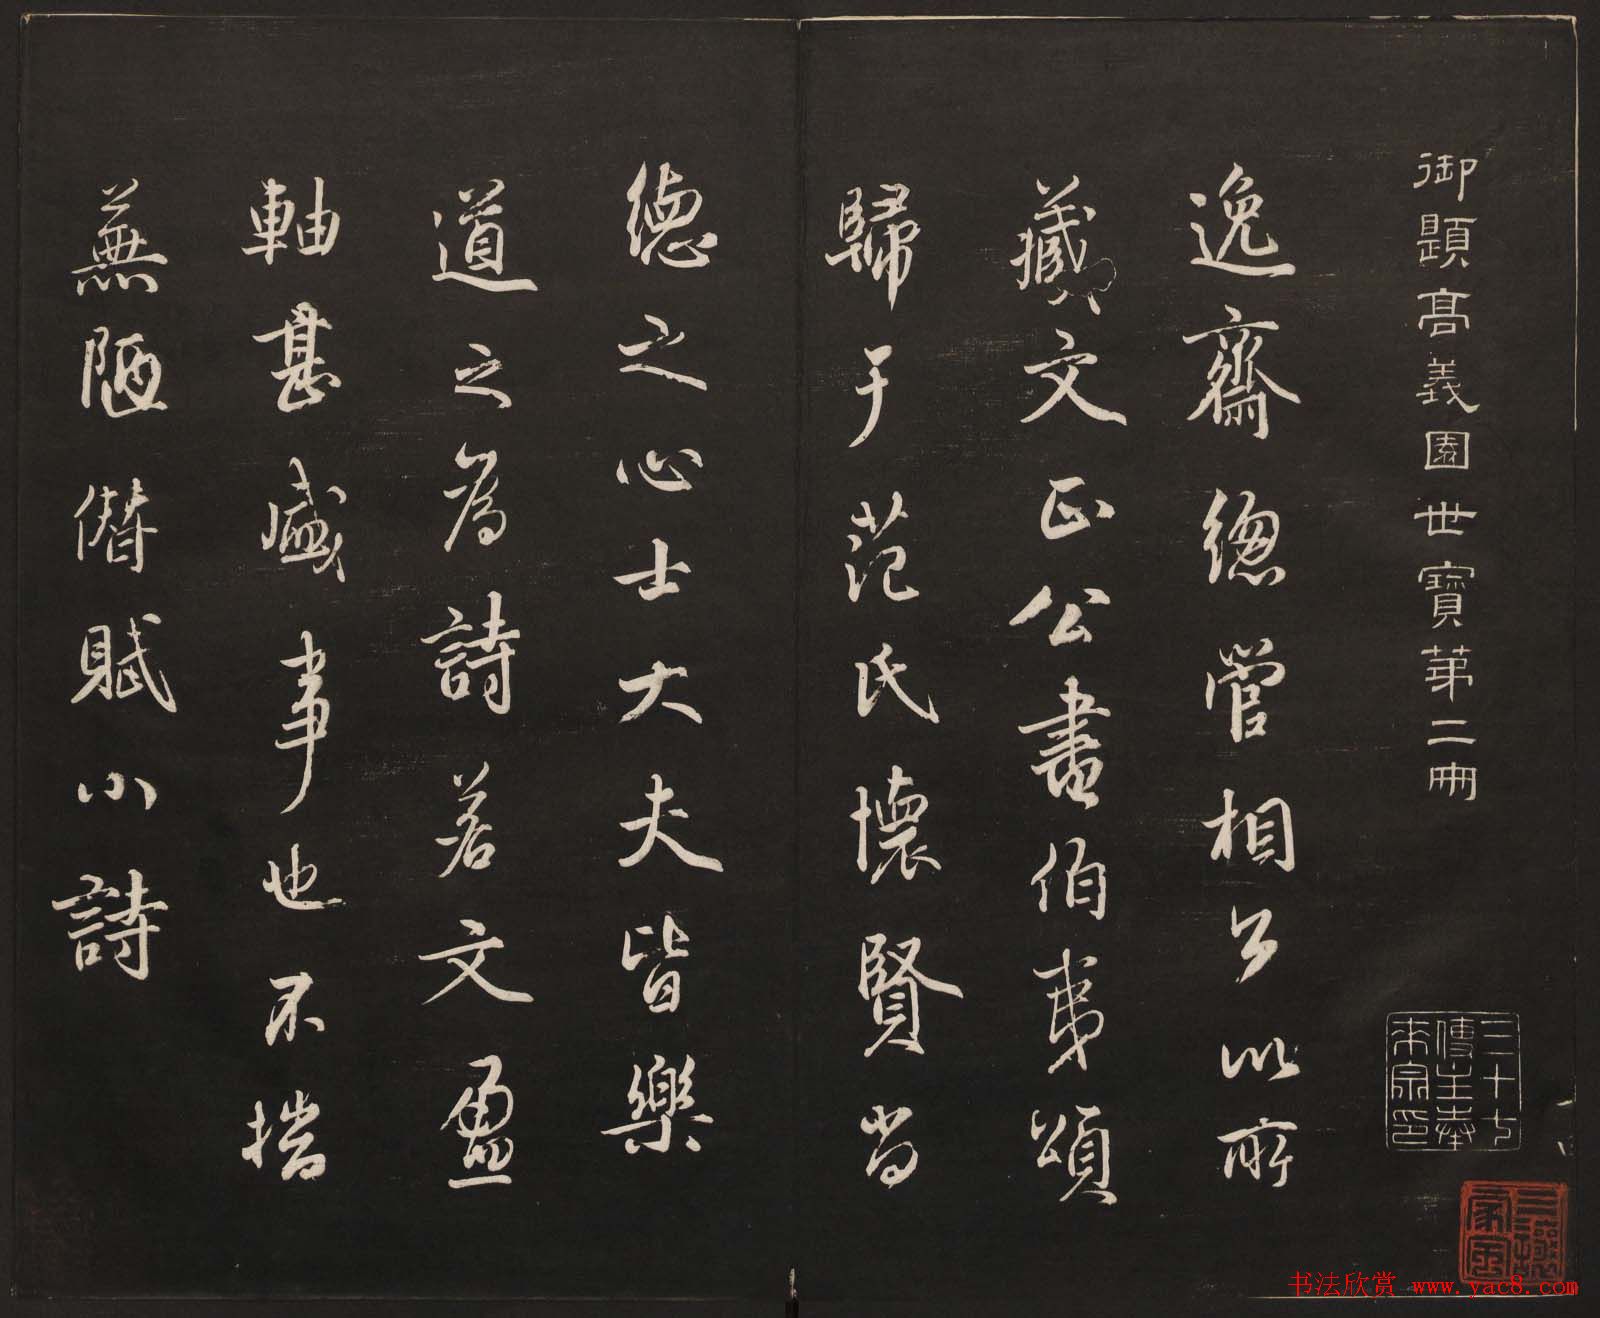 御題高義園世寶第二冊
逸齋總管相公以所
藏文正公書伯夷頌
歸于范氏懷賢尚
德之心士大夫皆樂
道之為詩若文盈
軸甚盛事也不揣
蕪陋僭賦小詩
三十七
傳主奉
来宗印
書法欣赏 www.yac8.com